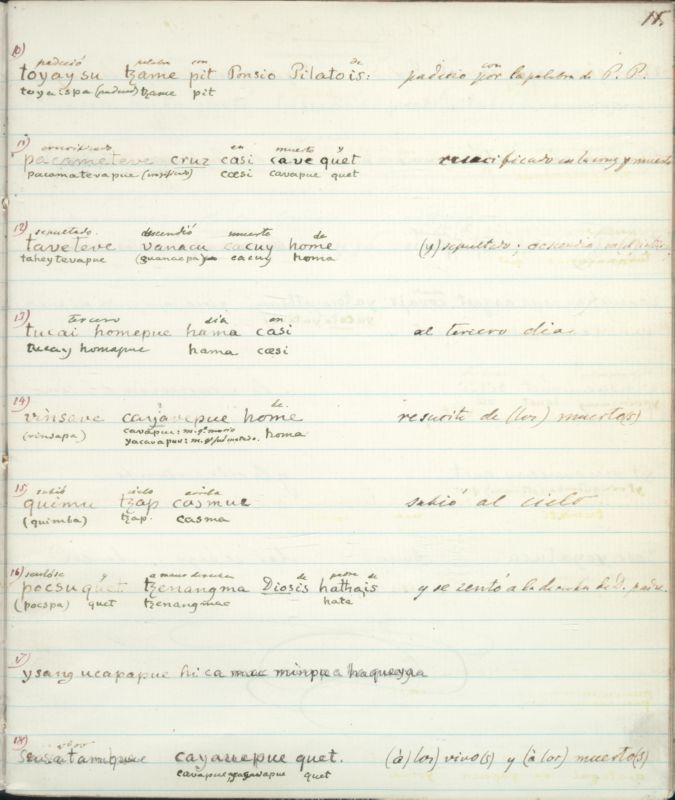 15.
10)
padeció palabra con de
toyaysu tzame pit Ponsio Pilatois: padecio por la palabra de P. P.
con
toyaispa (padecer) tzame pit
11)
crucificado en muerto y
pacameteve cruz casi cave quet en la cruz y muerto
pacamatevapue casi cavapue quet
12)
sepultado. descendió muerto de
taveteve vanacu cacuy home (y) sepultado; descendió
taheytevapue (guanacpa) cacuy homa
13)
tercero dia en
tucai homepue hama casi al tercero dia.
tucay homapue hama casi
14)
de
vinsave cayavepue home resucitó de (los) muerto(s)
(vinsapa) cavapue: m. qe murio homa
yacavapue: m. qe fué matado.
15)
subió cielo arriba
quimu tzap casmue subió al cielo
(quimba) tzap. casma
16)
sentóse y a mano derecha de padre de
pocsu quet tzenangma Diosis hathais y se sentó a la derecha de D. padre.
(pocspa) quet tzenangmae hata
17)
ysang ucapapue hi ca
18)
vivo
cayavepue quet. (à) los) vivo(s) y (à los) muerto(s)
cavapue, yacavapue quet